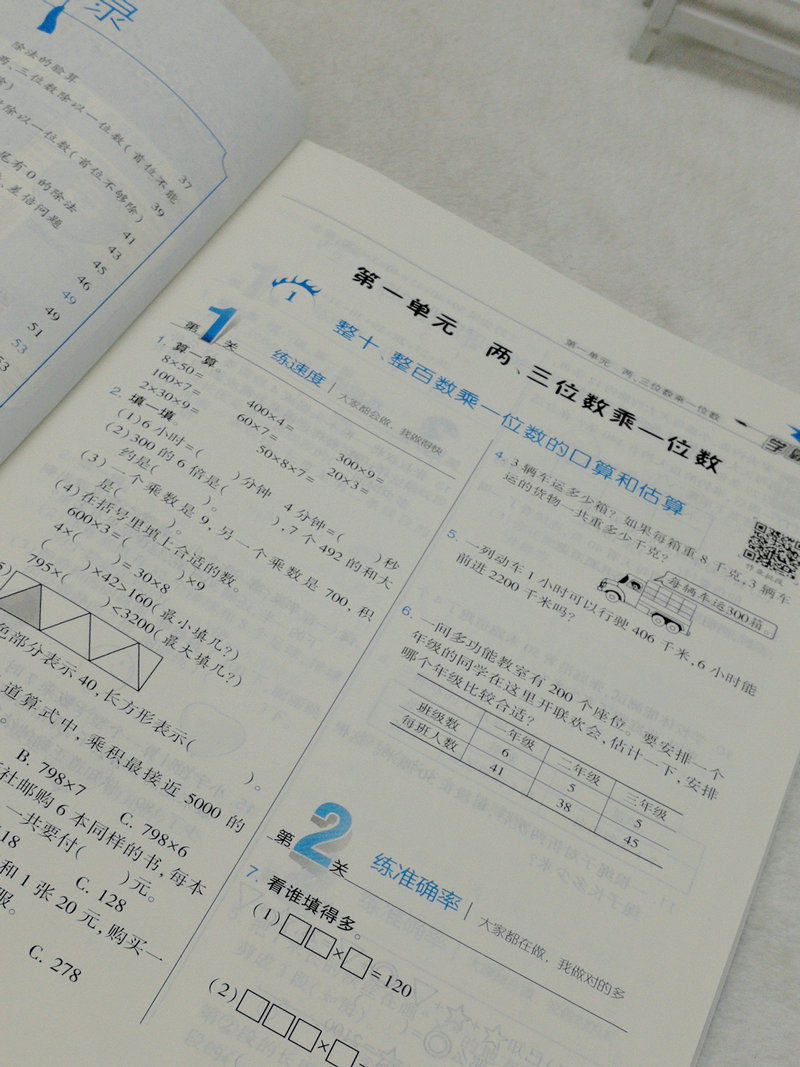 录
除法的验算
两、三位数除以一位数(首位不能
37
除以一位数(首位不够除)
39
尾有0的除法
41
差倍问题
43
45
46
49
49
51
53
53
第一单元 两、三位数乘一位数
学霸
第一单元 两、三位数乘一位数
1 整十、整百数乘一位数的口算和估算
第1关 练速度 大家都会做,我做得快
1. 算一算。
8×50= 400×4= 300×9=
100×7= 60×7= 20×3=
2×30×9= 50×8×7=
2. 填一填。
(1)6小时=( )分钟 4分钟=( )秒
(2)300的6倍是( ),7个492的和大
约是( )。
(3)一个乘数是9,另一个乘数是700,积
是( )。
(4)在括号里填上合适的数。
600×3=( )×9
4×( )=30×8
( )×42>160(最小填几?)
795×( )<3200(最大填几?)
色部分表示40,长方形表示( )。
道算式中,乘积最接近5000的
。
B. 798×7 C. 798×6
社邮购6本同样的书,每本
一共要付( )元。
18 C. 128
和1张20元,购买一
服。
C. 278
4. 3辆车运多少箱?如果每箱重8千克,3辆车
运的货物一共重多少千克?
每辆车运300箱。
5. 一列动车1小时可以行驶406千米,6小时能
前进2200千米吗?
6. 一间多功能教室有200个座位。要安排一个
年级的同学在这里开联欢会,估计一下,安排
哪个年级比较合适?
一年级 二年级 三年级
班级数 6 5 5
每班人数 41 38 45
第2关 练准确率 大家都在做,我做对的多
7. 看谁填得多。
(1)□□×□=120
(2)□□□×□=